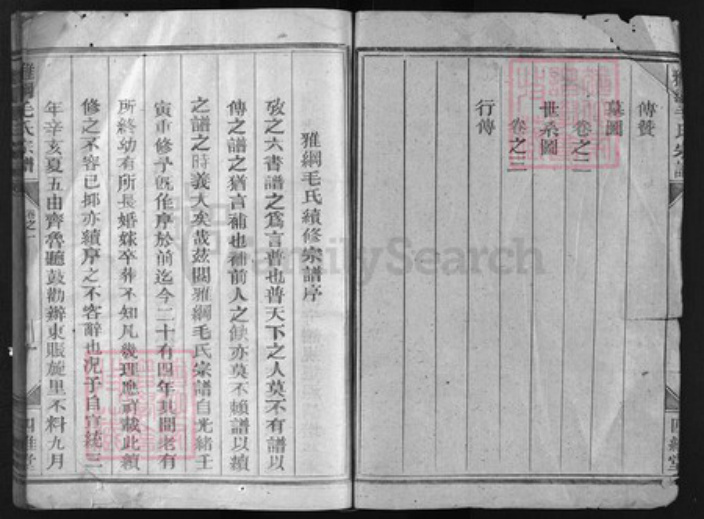 傳贊
墓圖
卷之二
世系圖
卷之三
行傳
雅綱毛氏續修宗譜序
攷之六書譜之爲言普也普天下之人莫不有譜以
傳之譜之猶言補也補前人之缺亦莫不賴譜以續
之譜之時義大矣哉茲閱雅綱毛氏宗譜自光緒壬
寅重修予旣作序於前迄今二十有四年其間老有
所終幼有所長婚嫁卒葬不知凡幾理應詳載此續
修之不容已抑亦續序之不容辭也况予自宣統三
年辛亥夏五由齊魯聽鼓勸辦東賑旋里不料九月
雅綱毛氏宗譜
卷之一
四維堂
雅綱毛氏宗譜
四維堂
FamilySearch